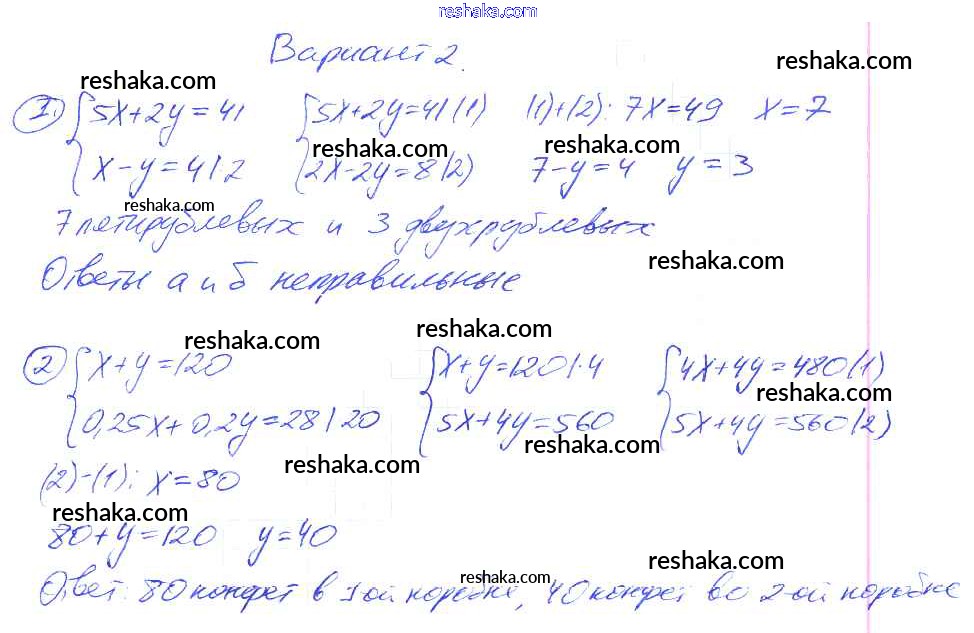 reshaka.com
Вариант 2.
reshaka.com reshaka.com
1. {5x+2y=41 {5x+2y=41 (1) (1)+(2): 7x=49 x=7
reshaka.com reshaka.com
x-y=4 |·2 2x-2y=8 (2) 7-y=4 y=3
reshaka.com
7 пятирублевых и 3 двухрублевых
reshaka.com
Ответы а и б неправильные
reshaka.com reshaka.com
2 {x+y=120 {x+y=120 |·4 {4x+4y=480 (1)
reshaka.com
0,25x+0,2y=28 |·20 5x+4y=560 5x+4y=560 (2)
reshaka.com reshaka.com
(2)-(1): x=80
reshaka.com
80+y=120 y=40
reshaka.com
reshaka.com
Ответ: 80 конфет в 1ой коробке, 40 конфет во 2-ой коробке